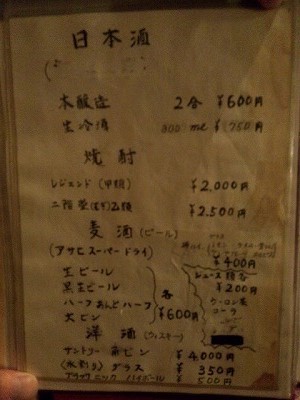 日本酒
本醸造 2合 ¥600円
生冷酒 300ml ¥750円
焼酎
レジェンド(甲類) ¥2,000円
二階堂(麦)乙類 ¥2,500円
麦酒(ビール)
(アサヒスーパードライ)
¥400円
生ビール
ジュース類各
¥200円
黒生ビール
ウーロン茶
ハーフあんどハーフ
コーラ
大ビン
各¥600円
洋酒(ウィスキー)
サントリー角ビン ¥4,000円
(水割り)グラス ¥350円
ハイボール ¥500円